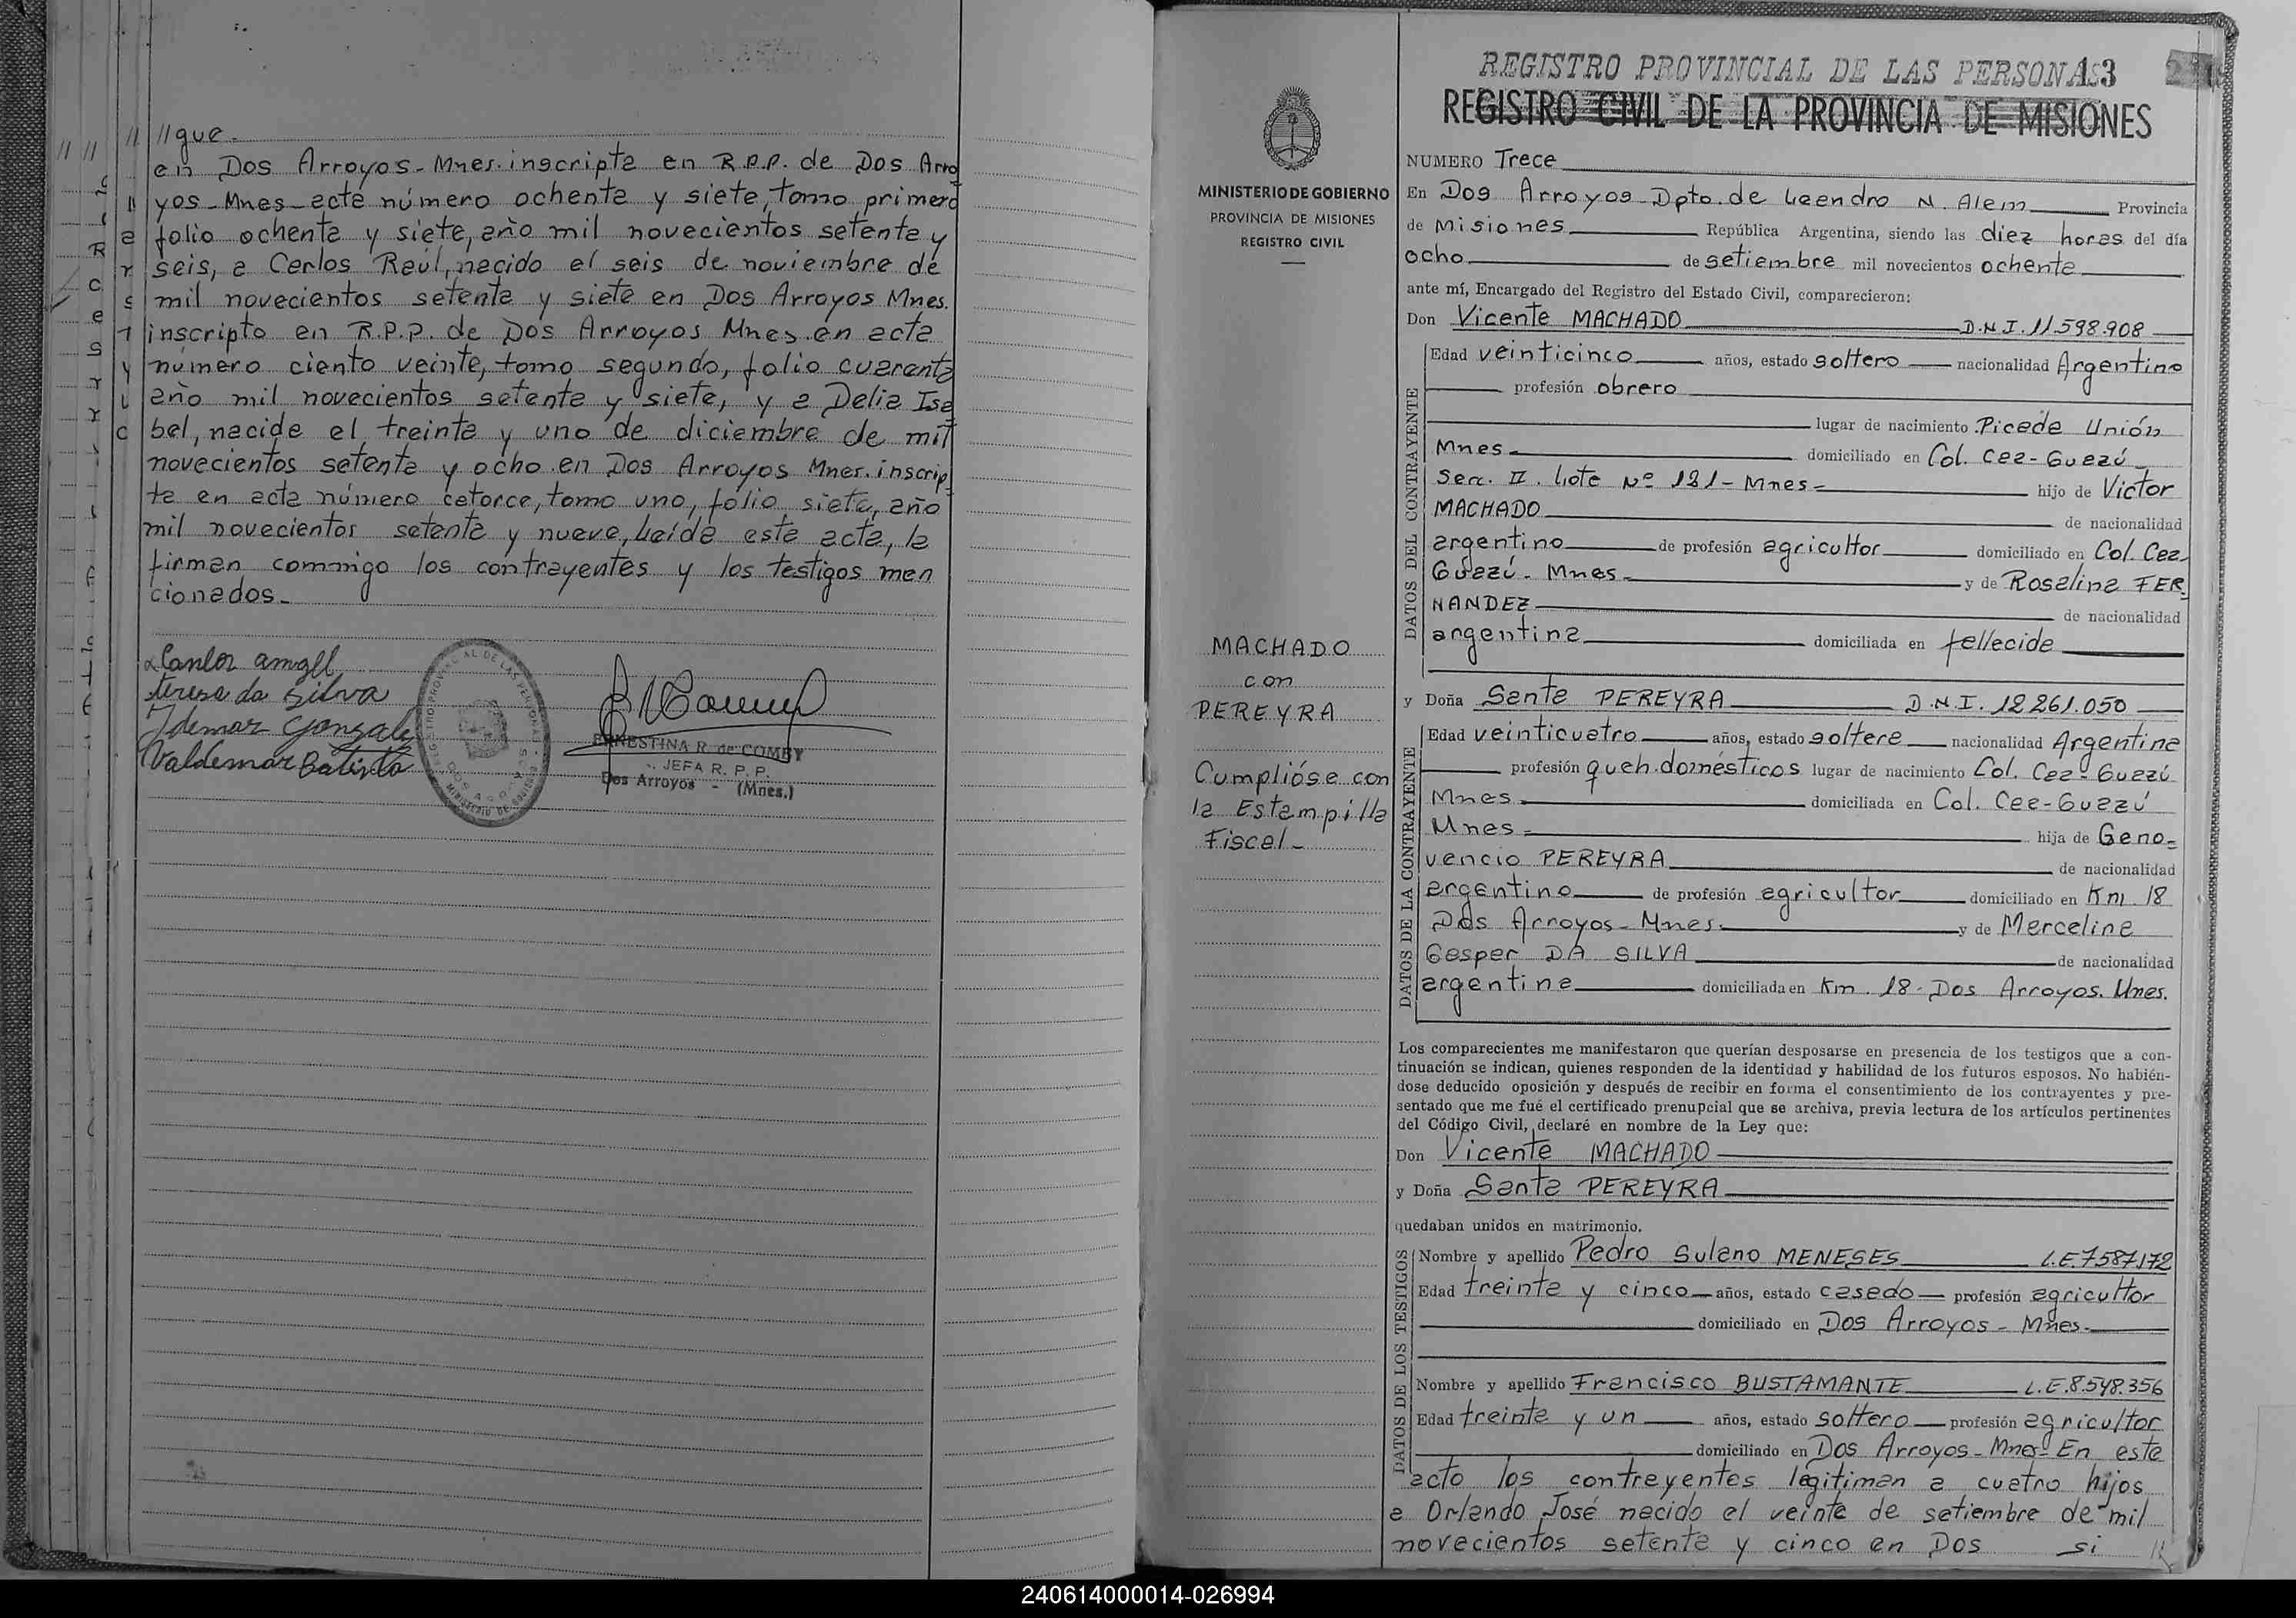 //que-
en Dos Arroyos-Mnes. inscripta en R.P.P. de Dos Arro
yos-Mnes-acta número ochenta y siete, tomo primero
folio ochenta y siete, año mil novecientos setenta y
seis, a Carlos Raúl, nacido el seis de noviembre de
mil novecientos setenta y siete en Dos Arroyos Mnes.
inscripto en R.P.P. de Dos Arroyos Mnes. en acta
número ciento veinte, tomo segundo, folio cuarenta
año mil novecientos setenta y siete, y a Delia Isa
bel, nacida el treinta y uno de diciembre de mil
novecientos setenta y ocho en Dos Arroyos Mnes. inscrip
ta en acta número catorce, tomo uno, folio siete, año
mil novecientos setenta y nueve, Leída este acta, la
firman conmigo los contrayentes y los testigos men
cionados-
teresa da Silva
Valdemar Batista
ERNESTINA R. de COMBY
JEFA R. P. P.
Dos Arroyos - (Mnes.)
REGISTRO PROVINCIAL DE LAS PERSONAS
13
REGISTRO CIVIL DE LA PROVINCIA DE MISIONES
MINISTERIO DE GOBIERNO
PROVINCIA DE MISIONES
REGISTRO CIVIL
MACHADO
con
PEREYRA
Cumplióse con
la Estampilla
Fiscal-
NUMERO Trece
En Dos Arroyos-Dpto. de Leandro N. Alem Provincia
de Misiones República Argentina, siendo las diez horas del día
ocho de setiembre mil novecientos ochenta
ante mí, Encargado del Registro del Estado Civil, comparecieron:
Don Vicente MACHADO D.N.I. 11.598.908
DATOS DEL CONTRAYENTE
Edad veinticinco años, estado soltero nacionalidad Argentino
profesión obrero
lugar de nacimiento Picada Unión
Mnes- domiciliado en Col. Caa-Guazú
Secc. II. Lote Nº 121-Mnes- hijo de Victor
MACHADO de nacionalidad
argentino de profesión agricultor domiciliado en Col. Caa-
Guazú-Mnes- y de Rosalina FER-
NANDEZ de nacionalidad
argentina domiciliada en fallecida
y Doña Santa PEREYRA D.N.I. 12.261.050
DATOS DE LA CONTRAYENTE
Edad veinticuatro años, estado soltera nacionalidad Argentina
profesión queh. domésticos lugar de nacimiento Col. Caa-Guazú
Mnes- domiciliada en Col. Caa-Guazú
Mnes- hija de Geno-
vencio PEREYRA de nacionalidad
argentino de profesión agricultor domiciliado en Km. 18
Dos Arroyos-Mnes- y de Marcelina
Gaspar DA SILVA de nacionalidad
argentina domiciliada en Km. 18-Dos Arroyos. Mnes.
Los comparecientes me manifestaron que querían desposarse en presencia de los testigos que a con-
tinuación se indican, quienes responden de la identidad y habilidad de los futuros esposos. No habién-
dose deducido oposición y después de recibir en forma el consentimiento de los contrayentes y pre-
sentado que me fué el certificado prenupcial que se archiva, previa lectura de los artículos pertinentes
del Código Civil, declaré en nombre de la Ley que:
Don Vicente MACHADO
y Doña Santa PEREYRA
quedaban unidos en matrimonio.
DATOS DE LOS TESTIGOS
Nombre y apellido Pedro Sulano MENESES L.E.7587.172
Edad treinta y cinco años, estado casado profesión agricultor
domiciliado en Dos Arroyos-Mnes-
Nombre y apellido Francisco BUSTAMANTE L.E.8.548.356
Edad treinta y un años, estado soltero profesión agricultor
domiciliado en Dos Arroyos-Mnes-En este
acto los contrayentes legitiman a cuatro hijos
a Orlando José nacido el veinte de setiembre de mil
novecientos setenta y cinco en Dos si
240614000014-026994